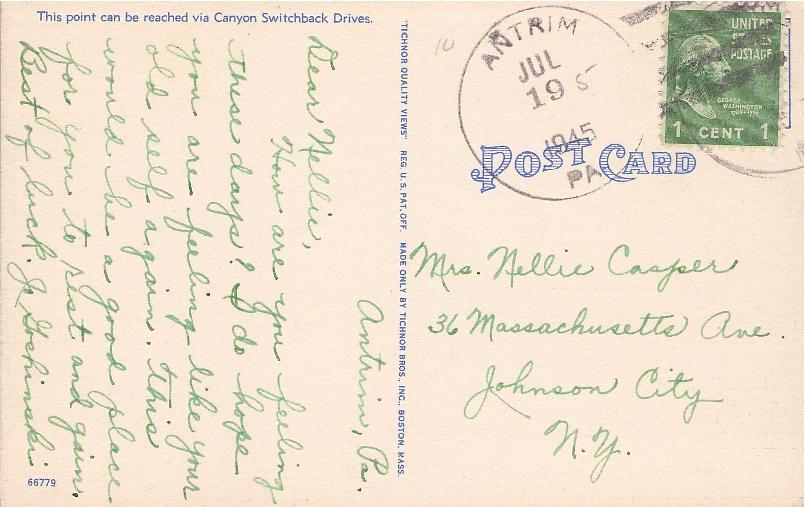 This point can be reached via Canyon Switchback Drives.
Antrim, Pa.
Dear Nellie,
How are you feeling
these days? I do hope
you are feeling like your
old self again. This
would be a good place
for you to rest and gain.
Best of luck. Jo Goshinski.
66779
"TICHNOR QUALITY VIEWS" REG. U. S. PAT. OFF. MADE ONLY BY TICHNOR BROS., INC., BOSTON, MASS.
10
ANTRIM
JUL
19
1945
PA
UNITED
STATES
POSTAGE
GEORGE
WASHINGTON
1789-1797
1 CENT 1
POST CARD
Mrs. Nellie Casper
36 Massachusetts Ave.
Johnson City
N.Y.